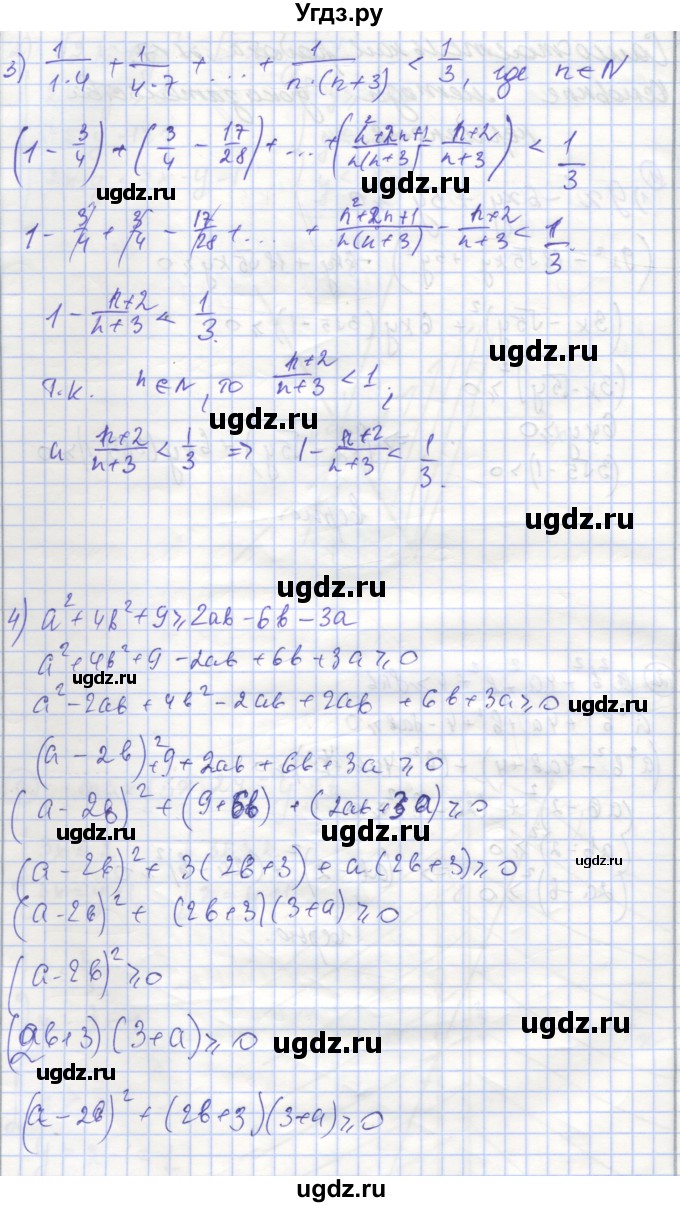 Угдз.ру
3) 1/(1·4) + 1/(4·7) + ... + 1/(n·(n+3)) < 1/3, где n∈N
(1 - 3/4) + (3/4 - 17/28) + ... + ((n²+2n+1)/(n(n+3)) - (n+2)/(n+3)) < 1/3
ugdz.ru
ugdz.ru
1 - 3/4 + 3/4 - 17/28 + ... + (n²+2n+1)/(n(n+3)) - (n+2)/(n+3) < 1/3.
1 - (n+2)/(n+3) < 1/3.
ugdz.ru
Т.к. n∈N, то (n+2)/(n+3) < 1,
ugdz.ru
а (n+2)/(n+3) < 1/3 ⇒ 1 - (n+2)/(n+3) < 1/3.
ugdz.ru
ugdz.ru
4) a²+4b²+9⩾2ab-6b-3a
a²+4b²+9-2ab+6b+3a⩾0
ugdz.ru
a²-2ab+4b²-2ab+2ab+6b+3a⩾0
ugdz.ru
(a-2b)²+9+2ab+6b+3a⩾0
(a-2b)²+(9+6b)+(2ab+3a)⩾0
ugdz.ru
ugdz.ru
(a-2b)²+3(2b+3)+a(2b+3)⩾0
ugdz.ru
(a-2b)²+(2b+3)(3+a)⩾0
ugdz.ru
(a-2b)²⩾0
(2b+3)(3+a)⩾0
ugdz.ru
ugdz.ru
ugdz.ru
(a-2b)²+(2b+3)(3+a)⩾0
ugdz.ru
ugdz.ru